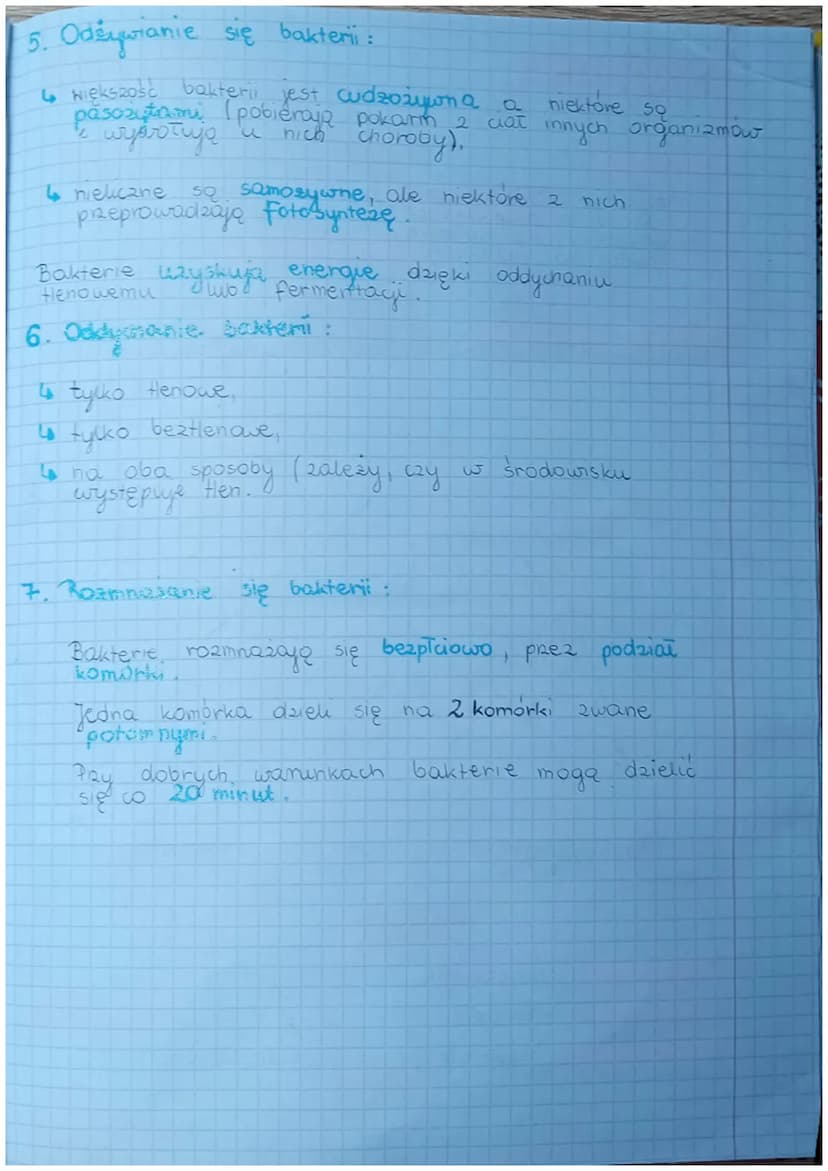 5. Odżywianie się bakterii:
↳ większość bakterii jest cudzożywna a niektóre są
pasożytami (pobierają pokarm z ciał innych organizmów
i wywołują u nich choroby).
↳ nieliczne są samożywne, ale niektóre z nich
przeprowadzają fotosyntezę.
Bakterie uzyskują energię dzięki oddychaniu
tlenowemu lub fermentacji.
6. Oddychanie bakterii:
↳ tylko tlenowe,
↳ tylko beztlenowe,
↳ na oba sposoby (zależy, czy w środowisku
występuje tlen.
7. Rozmnażanie się bakterii:
Bakterie rozmnażają się bezpłciowo, przez podział
komórki.
Jedna komórka dzieli się na 2 komórki zwane
potomnymi.
Przy dobrych warunkach bakterie mogą dzielić
się co 20 minut.